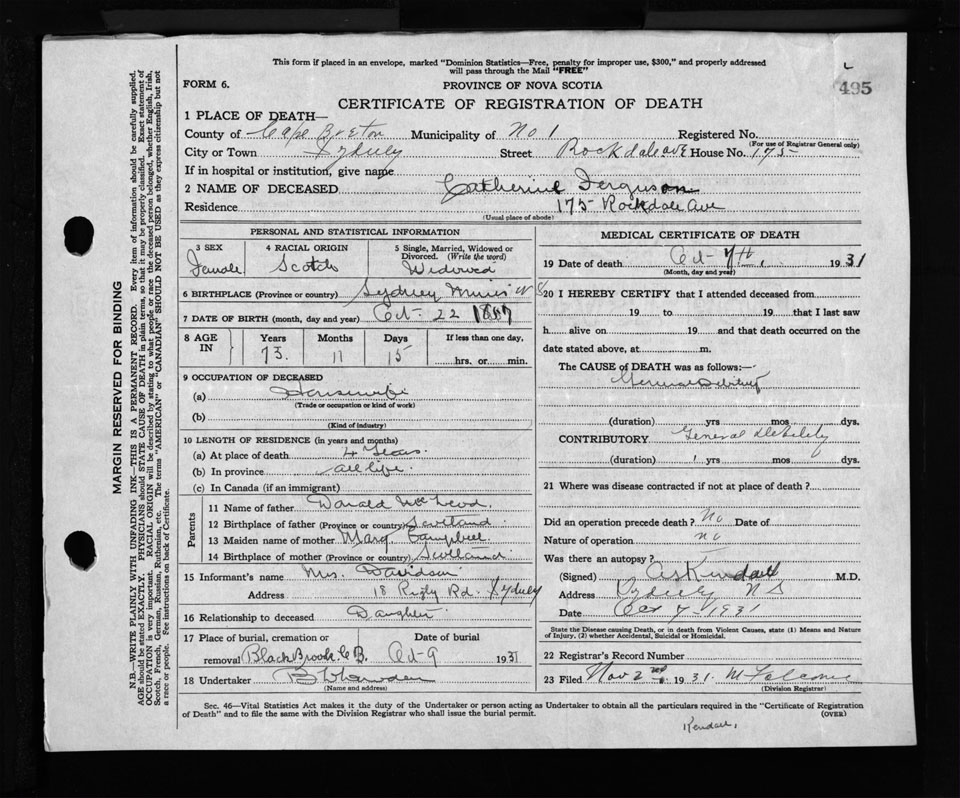 This form if placed in an envelope, marked "Dominion Statistics—Free, penalty for improper use, $300," and properly addressed
will pass through the Mail "FREE"
FORM 6.
PROVINCE OF NOVA SCOTIA
495
CERTIFICATE OF REGISTRATION OF DEATH
1 PLACE OF DEATH—
County of Cape Breton Municipality of No 1 Registered No.
(For use of Registrar General only)
City or Town Sydney Street Rockdale ave House No. 175
If in hospital or institution, give name
2 NAME OF DECEASED Catherine Ferguson
Residence 175 Rockdale Ave
(Usual place of abode)
PERSONAL AND STATISTICAL INFORMATION
3 SEX 4 RACIAL ORIGIN 5 Single, Married, Widowed or Divorced. (Write the word)
Female Scotch Widowed
6 BIRTHPLACE (Province or country) Sydney Mines N S
7 DATE OF BIRTH (month, day and year) Oct 22 1857
8 AGE IN Years Months Days If less than one day,
73 11 15 hrs. or min.
9 OCCUPATION OF DECEASED
(a) Housewife
(Trade or occupation or kind of work)
(b)
(Kind of industry)
10 LENGTH OF RESIDENCE (in years and months)
(a) At place of death 4 years
(b) In province all life
(c) In Canada (if an immigrant)
Parents
11 Name of father Donald McLeod
12 Birthplace of father (Province or country) Scotland
13 Maiden name of mother Marg Campbell
14 Birthplace of mother (Province or country) Scotland
15 Informant's name Mrs. Davidson
Address 18 Rigby Rd. Sydney
16 Relationship to deceased Daughter
17 Place of burial, cremation or removal Date of burial
Black Brook C B. Oct 9 1931
18 Undertaker
(Name and address)
MEDICAL CERTIFICATE OF DEATH
19 Date of death Oct 7th, 1931
(Month, day and year)
20 I HEREBY CERTIFY that I attended deceased from
19 to 19 that I last saw
h alive on 19 and that death occurred on the
date stated above, at m.
The CAUSE OF DEATH was as follows:—
(duration) yrs mos dys.
CONTRIBUTORY General debility
(duration) yrs mos dys.
21 Where was disease contracted if not at place of death?
Did an operation precede death? No Date of
Nature of operation no
Was there an autopsy?
(Signed) Kendall M.D.
Address Sydney N S
Date Oct 7 1931
State the Disease causing Death, or in death from Violent Causes, state (1) Means and Nature
of Injury, (2) whether Accidental, Suicidal or Homicidal.
22 Registrar's Record Number
23 Filed Nov 2nd 1931.
(Division Registrar)
Sec. 46—Vital Statistics Act makes it the duty of the Undertaker or person acting as Undertaker to obtain all the particulars required in the "Certificate of Registration
of Death" and to file the same with the Division Registrar who shall issue the burial permit. (OVER)
Kendall,
MARGIN RESERVED FOR BINDING
N.B.—WRITE PLAINLY WITH UNFADING INK—THIS IS A PERMANENT RECORD. Every item of information should be carefully supplied.
AGE should be stated EXACTLY. PHYSICIANS should STATE CAUSE OF DEATH in plain terms, so that it may be properly classified. Exact statement of
OCCUPATION is very important. RACIAL ORIGIN will be described by stating to what people or race the deceased person belonged, whether English, Irish,
Scotch, French, German, Russian, Ruthenian, etc. The terms "AMERICAN" or "CANADIAN" SHOULD NOT BE USED as they express citizenship but not
a race or people. See instructions on back of Certificate.